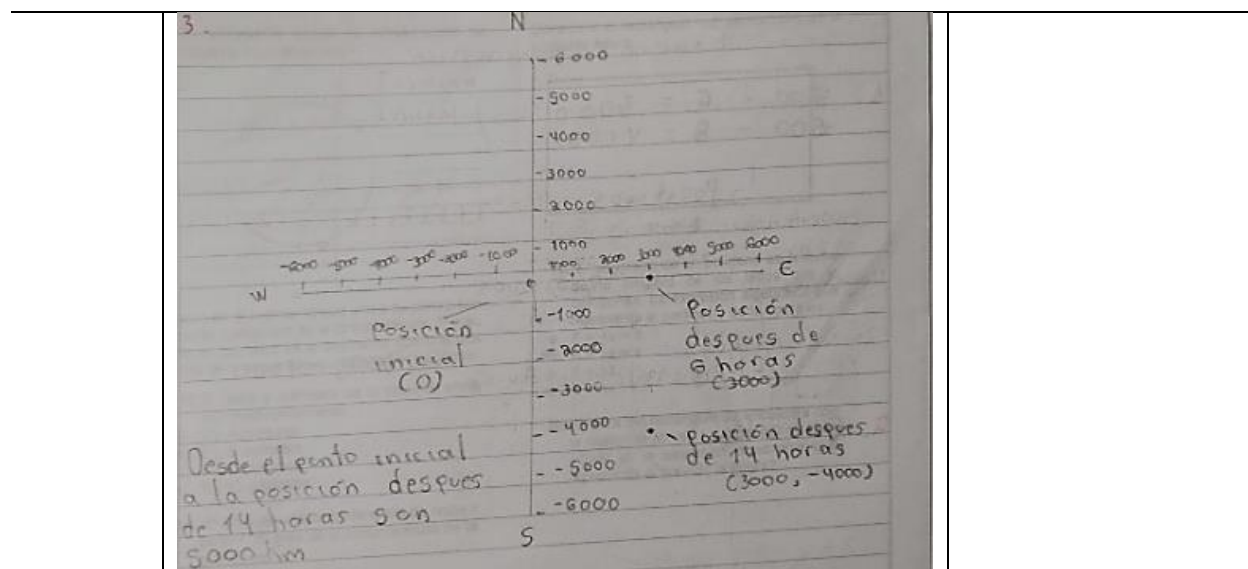 3.
N
6000
5000
4000
3000
2000
1000
-6000 -5000 -4000 -3000 -2000 -1000
1000 2000 3000 4000 5000 6000
W
E
-1000
-2000
-3000
-4000
-5000
-6000
S
Posición
inicial
(0)
Posición
despues de
6 horas
(3000)
posición despues
de 14 horas
(3000, -4000)
Desde el punto inicial
a la posición despues
de 14 horas son
5000 km